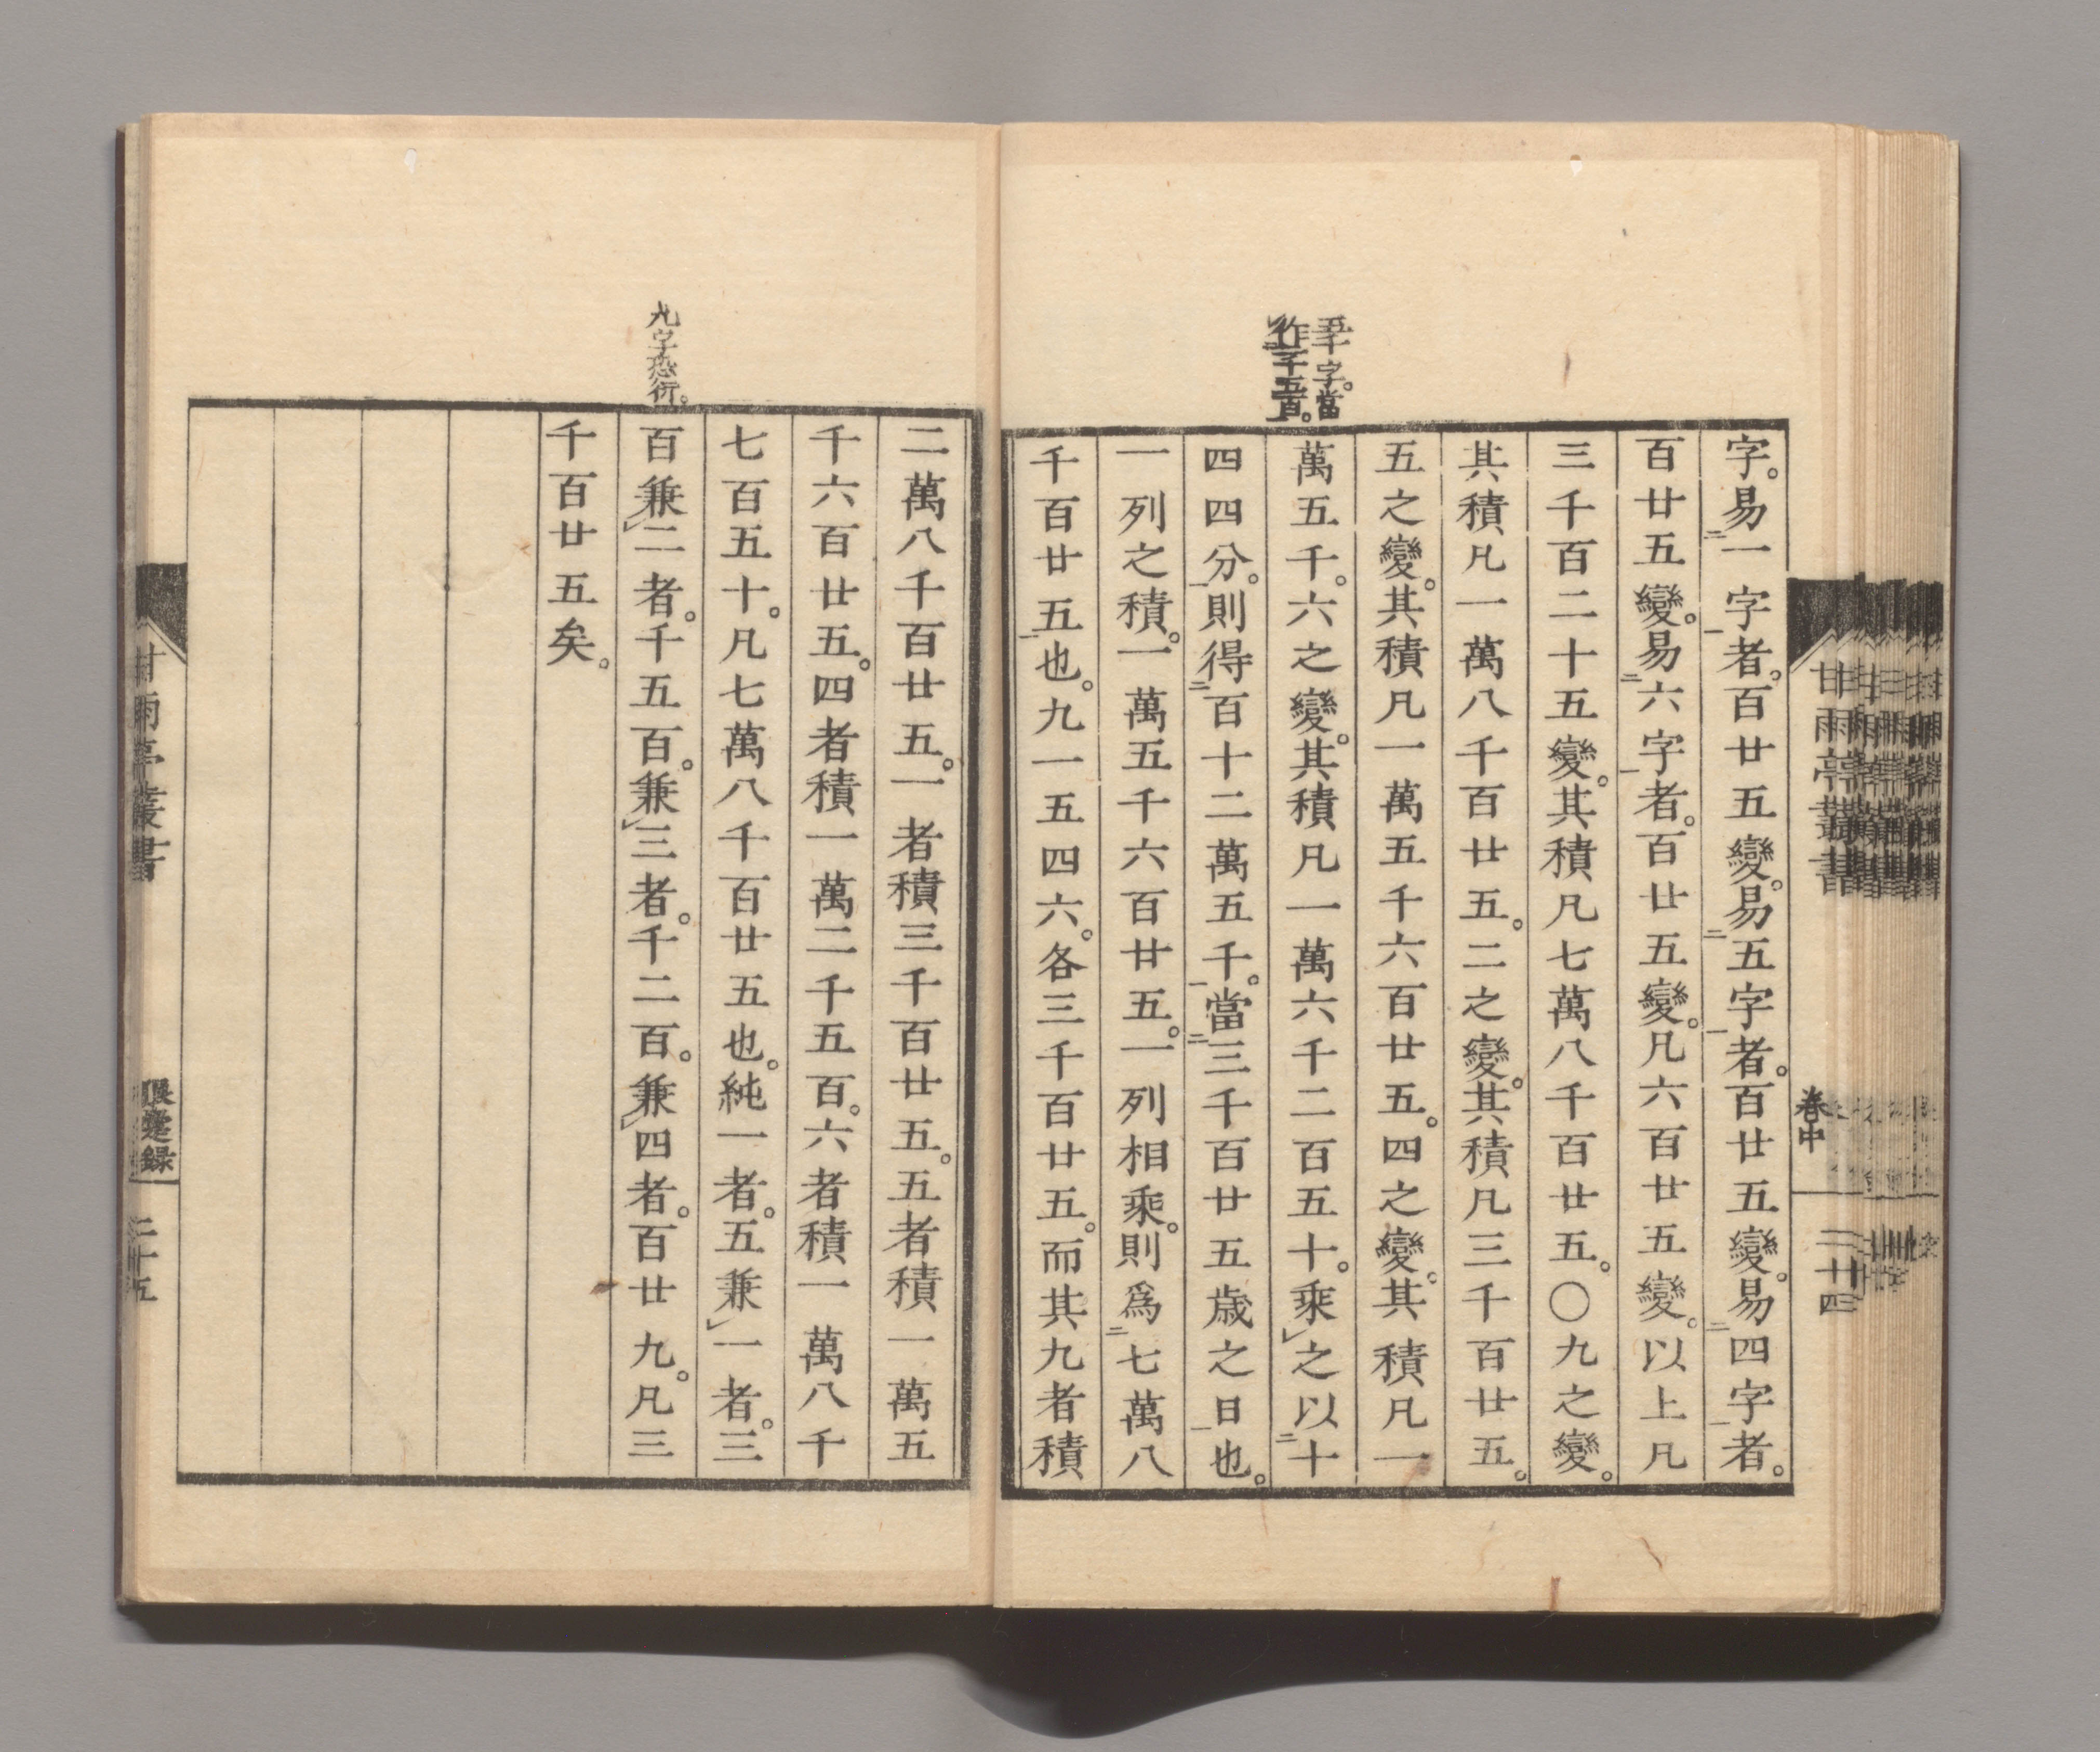 甘雨亭叢書
卷中
二十四
五千字。當
作二千五百。
字。易二一字一者。百廿五變。易二五字一者。百廿五變。易二四字一者。
百廿五變。易二六字一者。百廿五變。凡六百廿五變。以上凡
三千百二十五變。其積凡七萬八千百廿五。〇九之變。
其積凡一萬八千百廿五。二之變。其積凡三千百廿五。
五之變。其積凡一萬五千六百廿五。四之變。其積凡一
萬五千。六之變。其積凡一萬六千二百五十。乘レ之以二十
四四分。一則得二百十二萬五千。一當二三千百廿五歲之日一也。
一列之積。一萬五千六百廿五。一列相乘。則爲二七萬八
千百廿五一也。九一五四六。各三千百廿五。而其九者積
九字恐衍。
二萬八千百廿五。一者積三千百廿五。五者積一萬五
千六百廿五。四者積一萬二千五百。六者積一萬八千
七百五十。凡七萬八千百廿五也。純一者。五兼レ一者。三
百兼レ二者。千五百。兼レ三者。千二百。兼レ四者。百廿九。凡三
千百廿五矣。
甘雨亭叢書
二十五